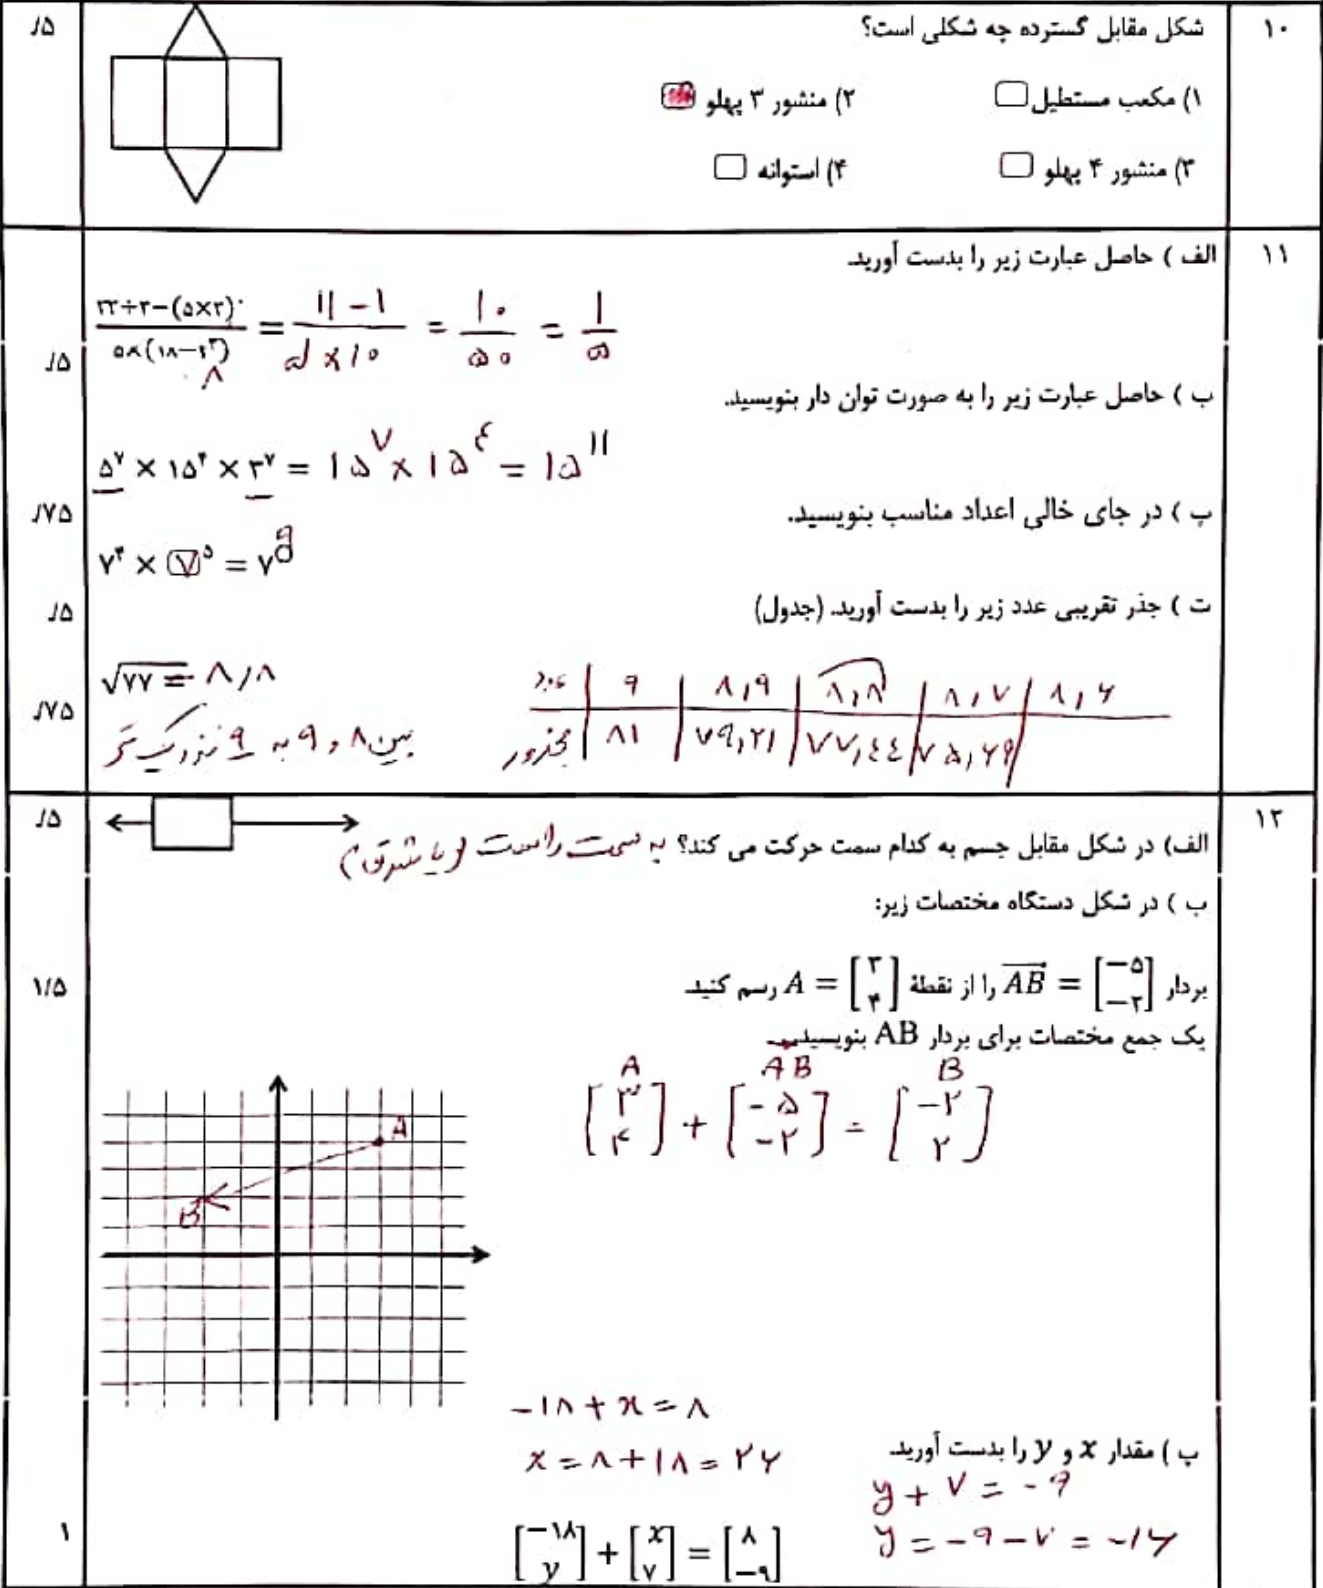 ۱۰
شکل مقابل گسترده چه شکلی است؟
/۵
۱) مکعب مستطیل
۲) منشور ۳ پهلو
۳) منشور ۴ پهلو
۴) استوانه
۱۱
الف ) حاصل عبارت زیر را بدست آورید.
(۵×۳)۰ = ۱۱ - ۱ / ۵ × ۱۰ = ۱۰ / ۵۰ = ۱ / ۵
۸
/۵
ب ) حاصل عبارت زیر را به صورت توان دار بنویسید.
۵^۷ × ۱۵^۴ × ۳^۷ = ۱۵^۷ × ۱۵^۴ = ۱۵^۱۱
/۷۵
پ ) در جای خالی اعداد مناسب بنویسید.
۷^۴ × ۷^۵ = ۷^۹
/۵
ت ) جذر تقریبی عدد زیر را بدست آورید. (جدول)
√۷۷ = ۸/۸
عدد | ۹ | ۸,۹ | ۸,۸ | ۸,۷ | ۸,۶
مجذور | ۸۱ | ۷۹,۲۱ | ۷۷,۴۴ | ۷۵,۶۹
/۷۵
بین ۸ و ۹ به ۹ نزدیک تر
۱۲
/۵
الف) در شکل مقابل جسم به کدام سمت حرکت می کند؟ به سمت راست (یا شرق)
ب ) در شکل دستگاه مختصات زیر:
۱/۵
بردار AB = [−۵ −۲] را از نقطۀ A = [۳ ۴] رسم کنید.
یک جمع مختصات برای بردار AB بنویسید.
A AB B
[۳ ۴] + [-۵ -۲] = [-۲ ۲]
A
B
پ ) مقدار x و y را بدست آورید.
-۱۸ + x = ۸
x = ۸ + ۱۸ = ۲۶
y + ۷ = -۹
y = -۹ - ۷ = -۱۶
۱
[−۱۸ y] + [x ۷] = [۸ −۹]